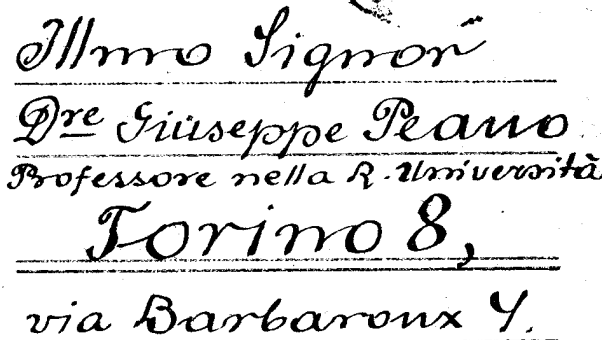 Illmo Signor
Dre Giuseppe Peano
Professore nella R. Università
Torino 8,
via Barbaroux 4.